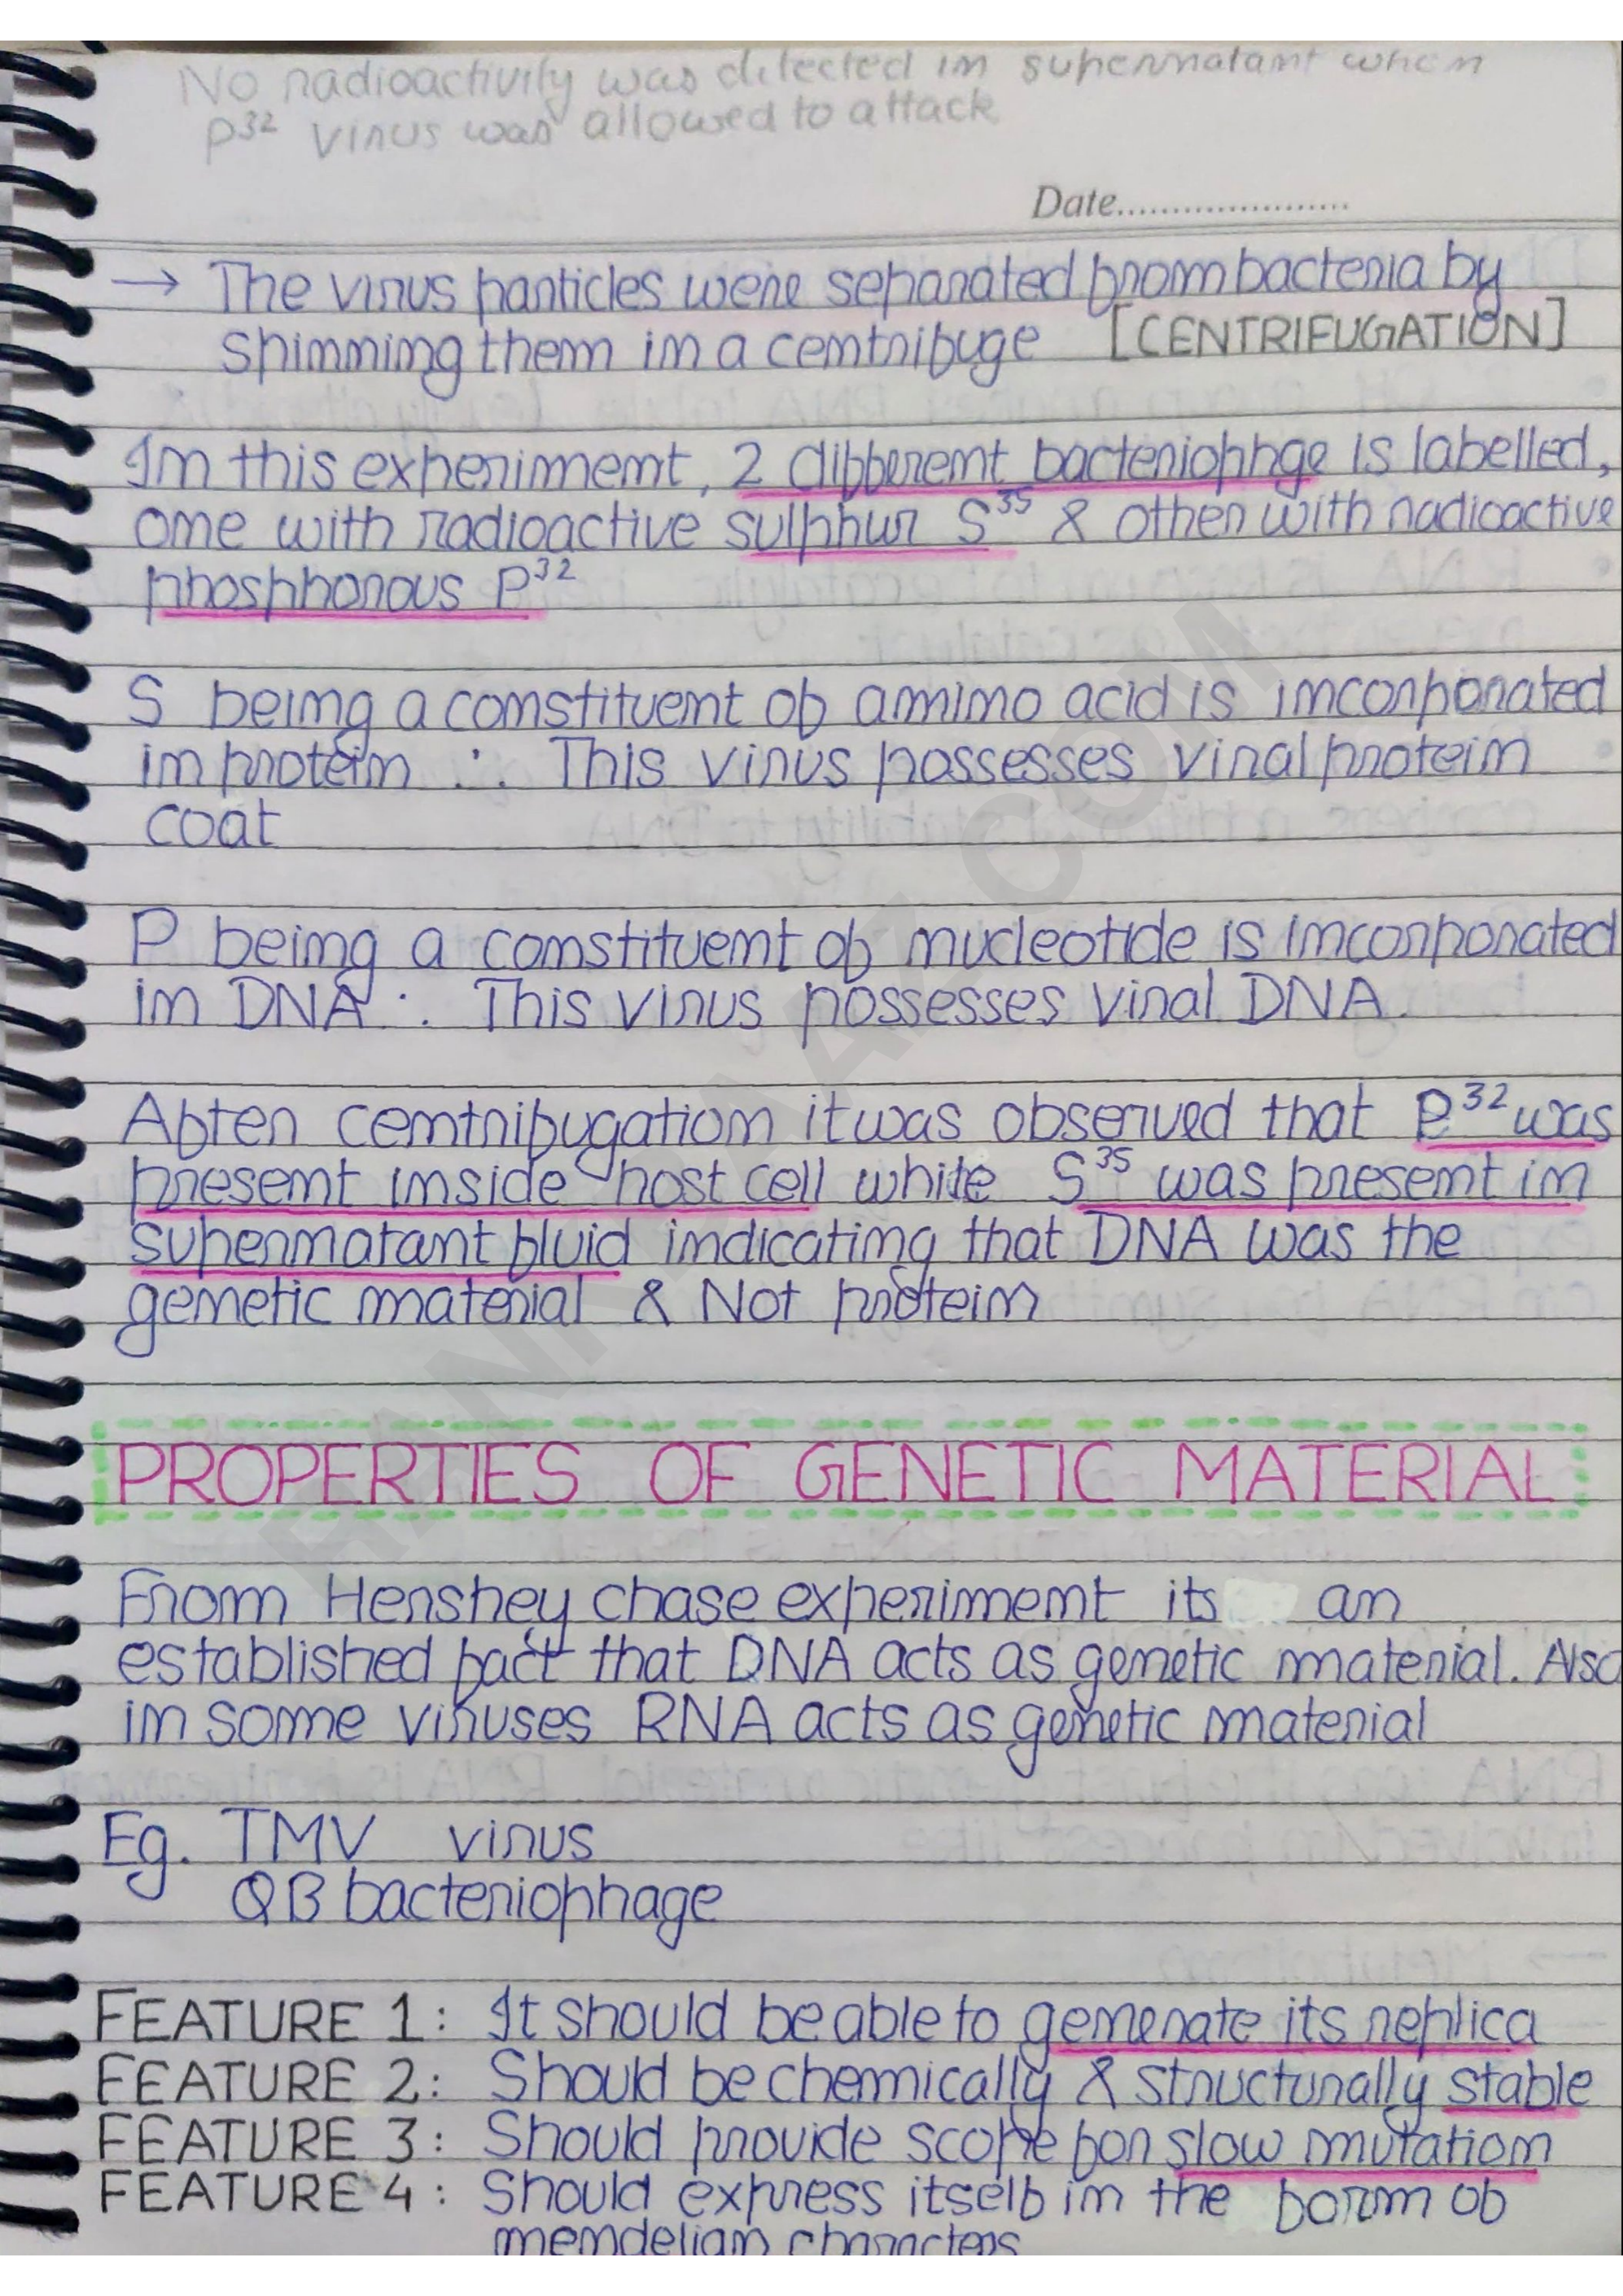 No radioactivity was detected in supernatant when
P³² virus was allowed to attack
Date......................
→ The virus particles were separated from bacteria by
spinning them in a centrifuge [CENTRIFUGATION]
In this experiment, 2 different bacteriophge is labelled,
one with radioactive sulphur S³⁵ & other with radioactive
phosphorous P³²
S being a constituent of amino acid is incorporated
in protein ∴ This virus possesses viral protein
coat
P being a constituent of nucleotide is incorporated
in DNA ∴ This virus possesses viral DNA.
After centrifugation it was observed that P³² was
present inside host cell while S³⁵ was present in
supernatant fluid indicating that DNA was the
genetic material & Not protein
PROPERTIES OF GENETIC MATERIAL
From Hershey chase experiment its an
established fact that DNA acts as genetic material. Also
in some viruses RNA acts as genetic material
Eg. TMV virus
QB bacteriophage
FEATURE 1: It should be able to generate its replica
FEATURE 2: Should be chemically & structurally stable
FEATURE 3: Should provide scope for slow mutation
FEATURE 4: Should express itself in the form of
mendelian characters